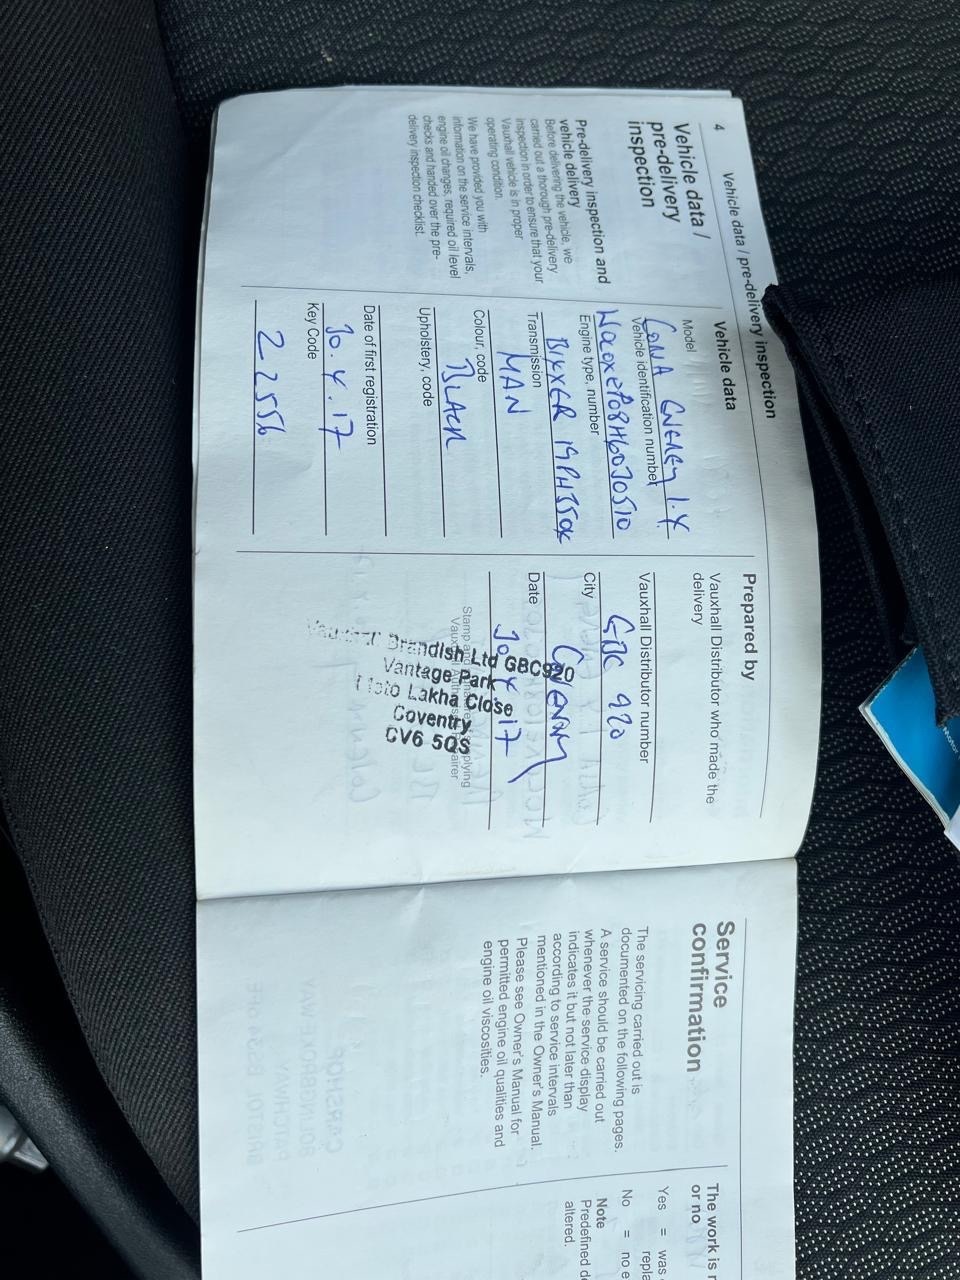 4
Vehicle data / pre-delivery inspection
Vehicle data /
pre-delivery
inspection
Pre-delivery inspection and
vehicle delivery
Before delivering the vehicle, we
carried out a thorough pre-delivery
inspection in order to ensure that your
Vauxhall vehicle is in proper
operating condition.
We have provided you with
information on the service intervals,
engine oil changes, required oil level
checks and handed over the pre-
delivery inspection checklist.
Vehicle data
Model
ENERGY 1.4
Vehicle identification number
Engine type, number
Transmission
MAN
Colour, code
BLACK
Upholstery, code
Date of first registration
30.4.17
Key Code
22556
Prepared by
Vauxhall Distributor who made the
delivery
Vauxhall Distributor number
GBC 920
City
COVENTRY
Date
30.4.17
Stamp and
Brandish Ltd GBC920
Vantage Park
Lakha Close
Coventry
CV6 5QS
Service
confirmation
The servicing carried out is
documented on the following pages.
A service should be carried out
whenever the service display
indicates it but not later than
according to service intervals
mentioned in the Owner's Manual.
Please see Owner's Manual for
permitted engine oil qualities and
engine oil viscosities.
The work is
or no
Yes = was
No = no
Note
Predefined
altered.